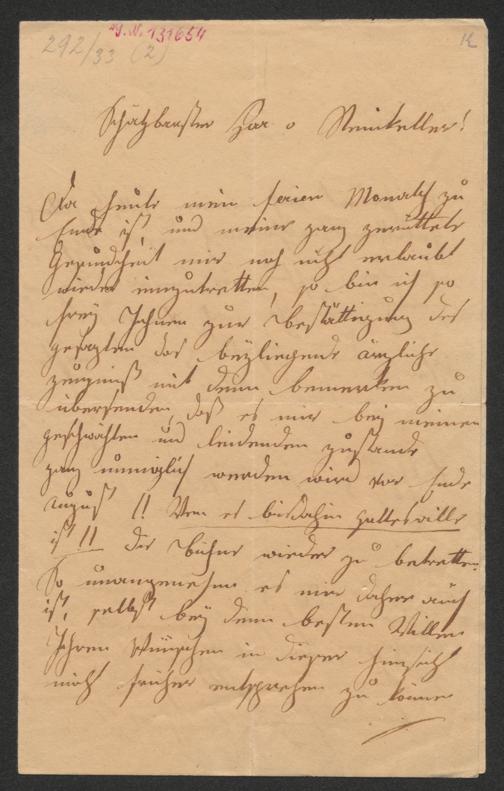 J.N. 131654
292/33 (2)
Schätzbarster Herr v Steinkeller!
Da heute mein ferien Monath zu
Ende ist, und meine ganz zerrüttete
Gesundheit mir noch nicht erlaubt
wieder einzutretten, so bin ich so
frey Ihnen zur Bestättigung des
gesagten das beyliegende ärztliche
zeugniß mit dem bemerken zu
übersenden, daß es mir bey meinen
geschwächten und leidenden zustande
ganz unmöglich werden wird vor Ende
August !! Wen es bis dahin gottes wille
ist !! die Bühne wieder zu betretten.
So unangenehm es mir daher auch
ist, selbst bey dem besten Willen
Ihren Wünschen in dieser hinsicht
nicht früher entsprechen zu können